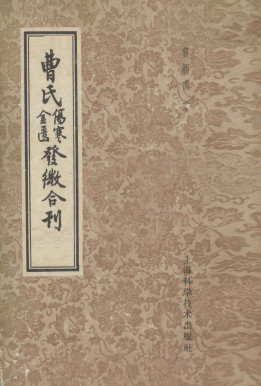 曹穎甫 著
上海科学技术出版社
曹氏傷寒金匱發微合刊